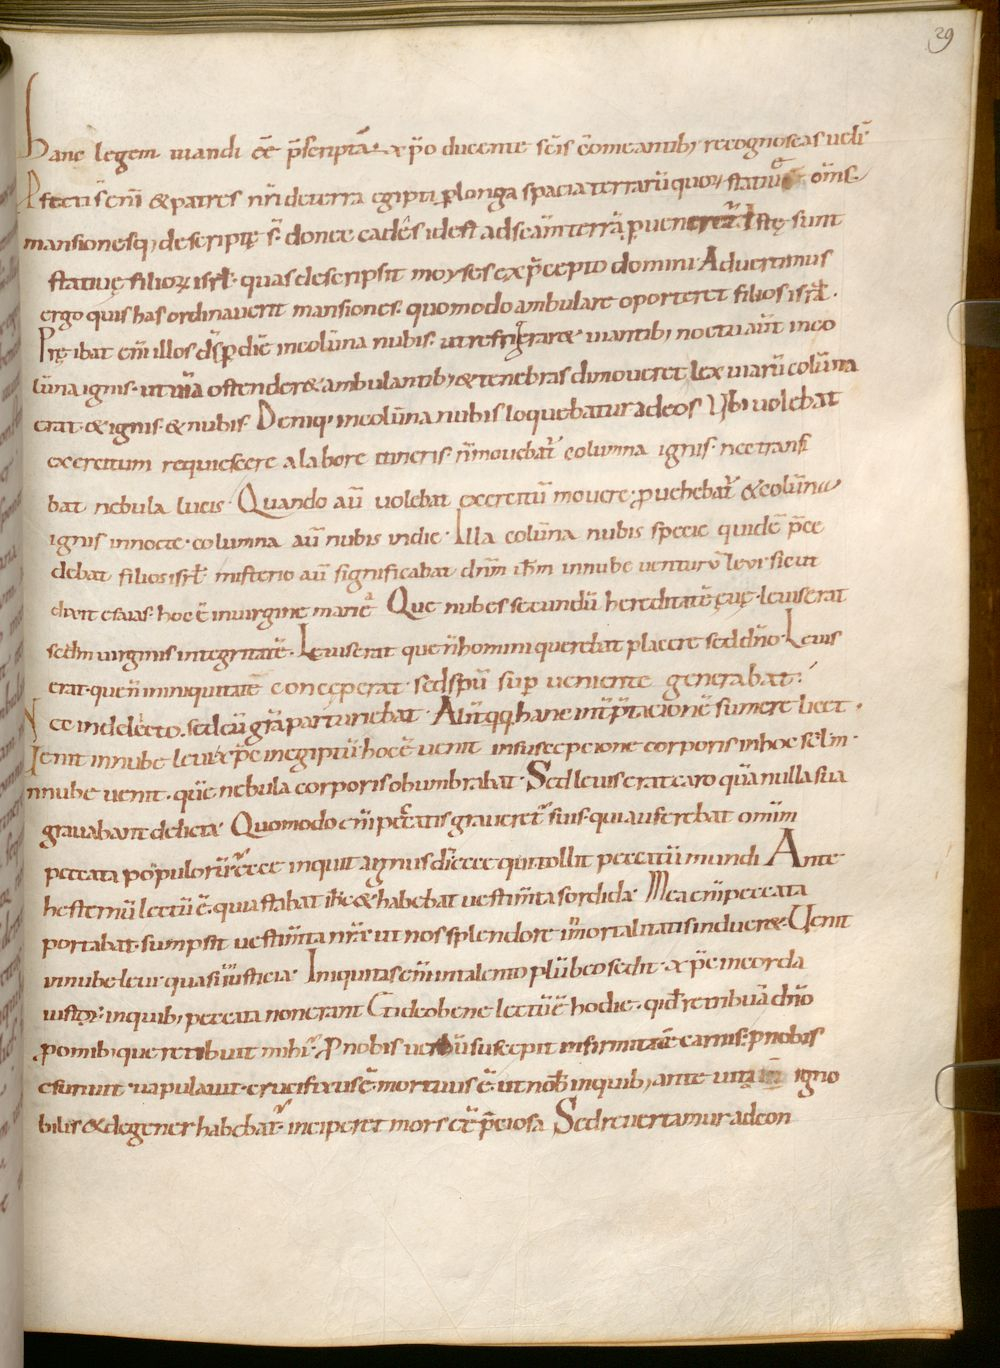 29
hanc legem uiandi eē p̄scriptā. a xp̄o ducente sc̄is cōmeantib; recognoscas uelī
Pfecti s̄ enī & patres nr̄i de terra egipti ꝑ longa spacia terrarū quoꝝ statiuę om̄s.
mansionesq; descriptę s̄. donec cadēs id est ad sc̄am terrā ꝑuenerēt. Istę sunt
statiuę filioꝝ isrł. quas descripsit moyses ex p̄cepto domini. Aduertimus
ergo quis has ordinauerit mansiones. quomodo ambulare oporteret filios isrł.
Pręibat em̄ illos dn̄s ꝑ diē in colūna nubis. ut refrigeraret uiantib; noctu aūt in co
lūna ignis. ut uia ostenderet ambulantib; & tenebras dimoueret lex uiarū colūna
erat. & ignis. & nubis. Deniq; in colūna nubis loquebatur ad eos Vbi uolebat
exercitum requiescere a labore itineris. n̄ mouebat̄ columna ignis. nec transi
bat nebula lucis. Quando aū uolebat exercitū mouere; ꝓuehebat̄ & colūna
ignis in nocte. columna aū nubis in die. Illa colūna nubis specie quidē p̄ce
debat filios isrł. misterio aū significabat dn̄m ih̄m in nube venturū leui sicut
dixit esaias. hoc ē in uirgine maria Que nubes secundū hereditatē euę. leuis erat
scdm uirginis integritatē. Leuis erat que n̄ homini querebat placere sed dn̄o. Leuis
erat. que n̄ in iniquitatē conceperat. sed sp̄u supueniente generabat.
Nec in delicto. sed cū gr̄a parturiebat. Alit̄ qq hanc int̄p̄tacionē sumere licet.
Uenit in nube leui xp̄c in egiptū hoc ē uenit in suscepcione corporis in hoc sc̄lm.
In nube uenit. que nebula corporis obumbrabat. Sed leuis erat caro quā nulla sua
grauabant delicta. Quomodo em̄ peccatis graueret̄ suis. qui auferebat omīm
peccata populorū. Ecce inquit agnus di ecce qui tollit peccatū mundi Ante
hesternū lectū ē. quia stabat ih̄c & habebat uestim̄ta sordida. Mea em̄ peccata
portabat. sumpsit uestim̄ta nr̄a ut nos splendore im̄ortalitatis indueret. Uenit
in nube leui. quasi iusticia. Iniquitas em̄ in talento plūbeo sedit. & xp̄c in corda
iustoꝝ. in quib; peccata non erant Et ideo bene lectū ē hodie. qid retribuā dn̄o
ꝓ omib; que retribuit mihi. Pro nobis uerbū suscepit infirmitatē carnis. ꝓ nobis
esuriit. uapulauit. crucifixus ē. mortuus ē. ut nobis in quib; ante uita igno
bilis & degener habebat̄. inciperet mors eē p̄ciosa Sed reuertamur ad eon